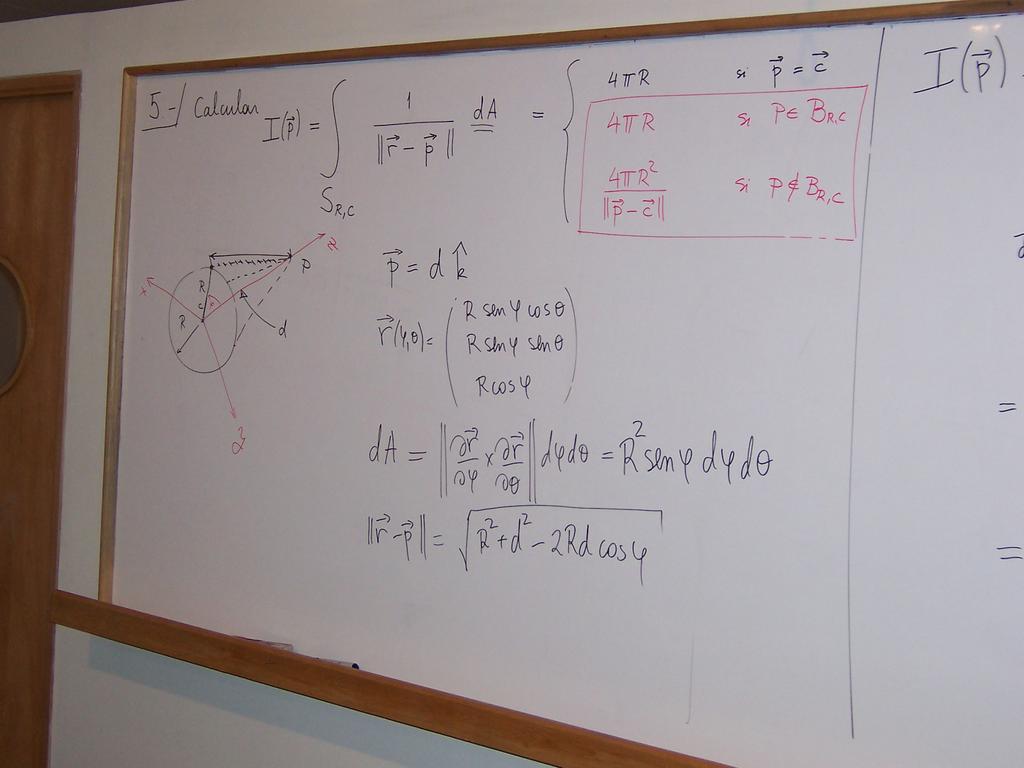 5.-/ Calcular I(p⃗) = ∫_{S_{R,C}} 1/‖r⃗ - p⃗‖ dA = { 4πR si p⃗ = c⃗
4πR si P ∈ B_{R,C}
4πR²/‖p⃗ - c⃗‖ si P ∉ B_{R,C}
z
P
R
x
c
R
d
p⃗ = d k̂
r⃗(φ,θ) = ( R sen φ cos θ
R sen φ sen θ
R cos φ )
dA = ‖∂r⃗/∂φ × ∂r⃗/∂θ‖ dφ dθ = R² sen φ dφ dθ
‖r⃗ - p⃗‖ = √(R² + d² - 2Rd cos φ)
I(p⃗)
=
=